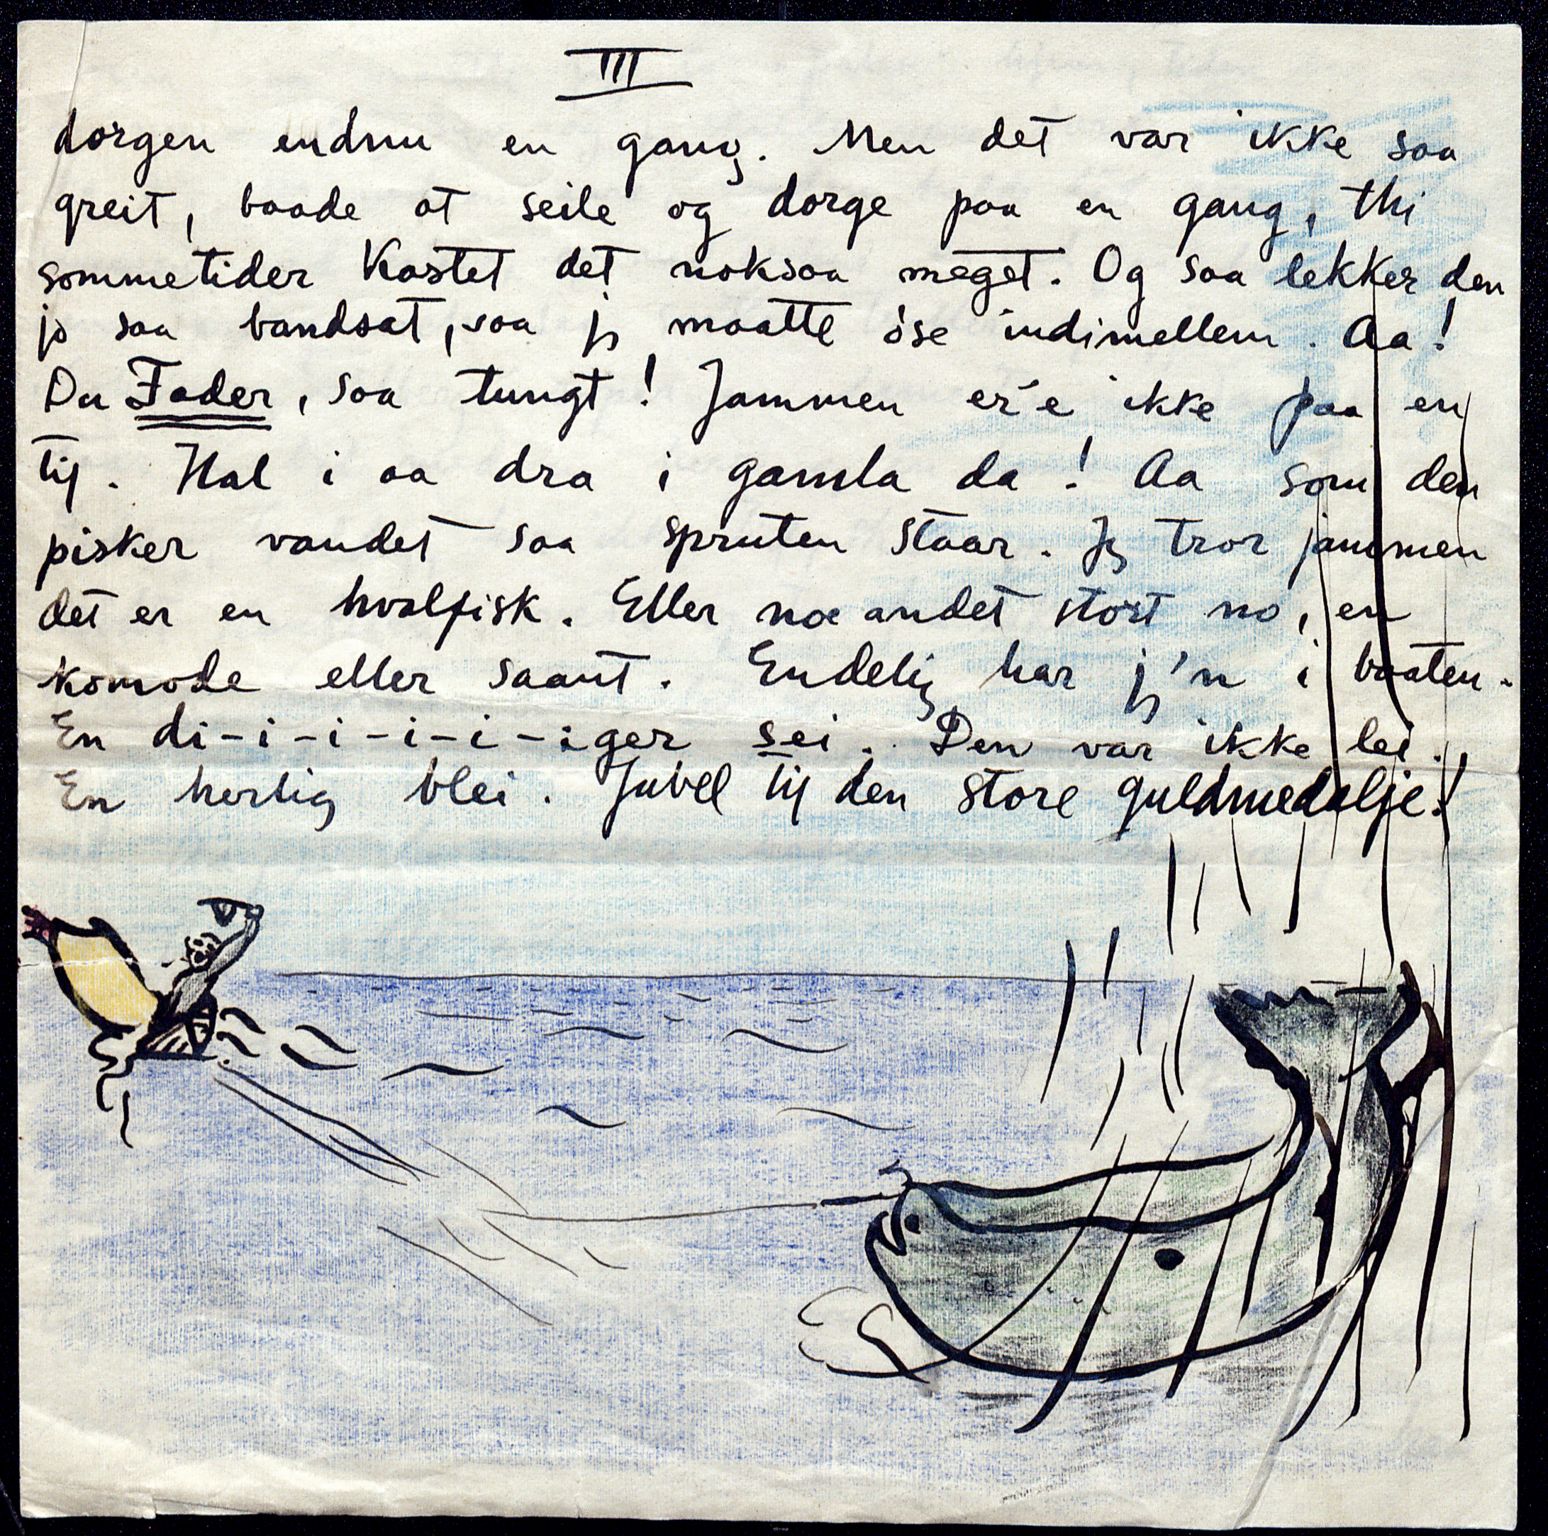 III
dorgen endnu en gang. Men det var ikke saa
greit, baade at seile og dorge paa en gang, thi
sommetider kastet det noksaa meget. Og saa lekker den
jo saa bandsat, saa jg maatte øse indimellem. Aa!
Du Fader, saa tungt! Jammen er'e ikke paa en
tij. Hal i aa dra i gamla da! Aa som den
pisker vandet saa spruten staar. Jg tror jammen
det er en hvalfisk. Eller noe andet stort no, en
komode eller saant. Endelig har jg'n i baaten.
En di-i-i-i-i-iger sei. Den var ikke lei.
En herlig blei. Jubel tij den store guldmedalje!